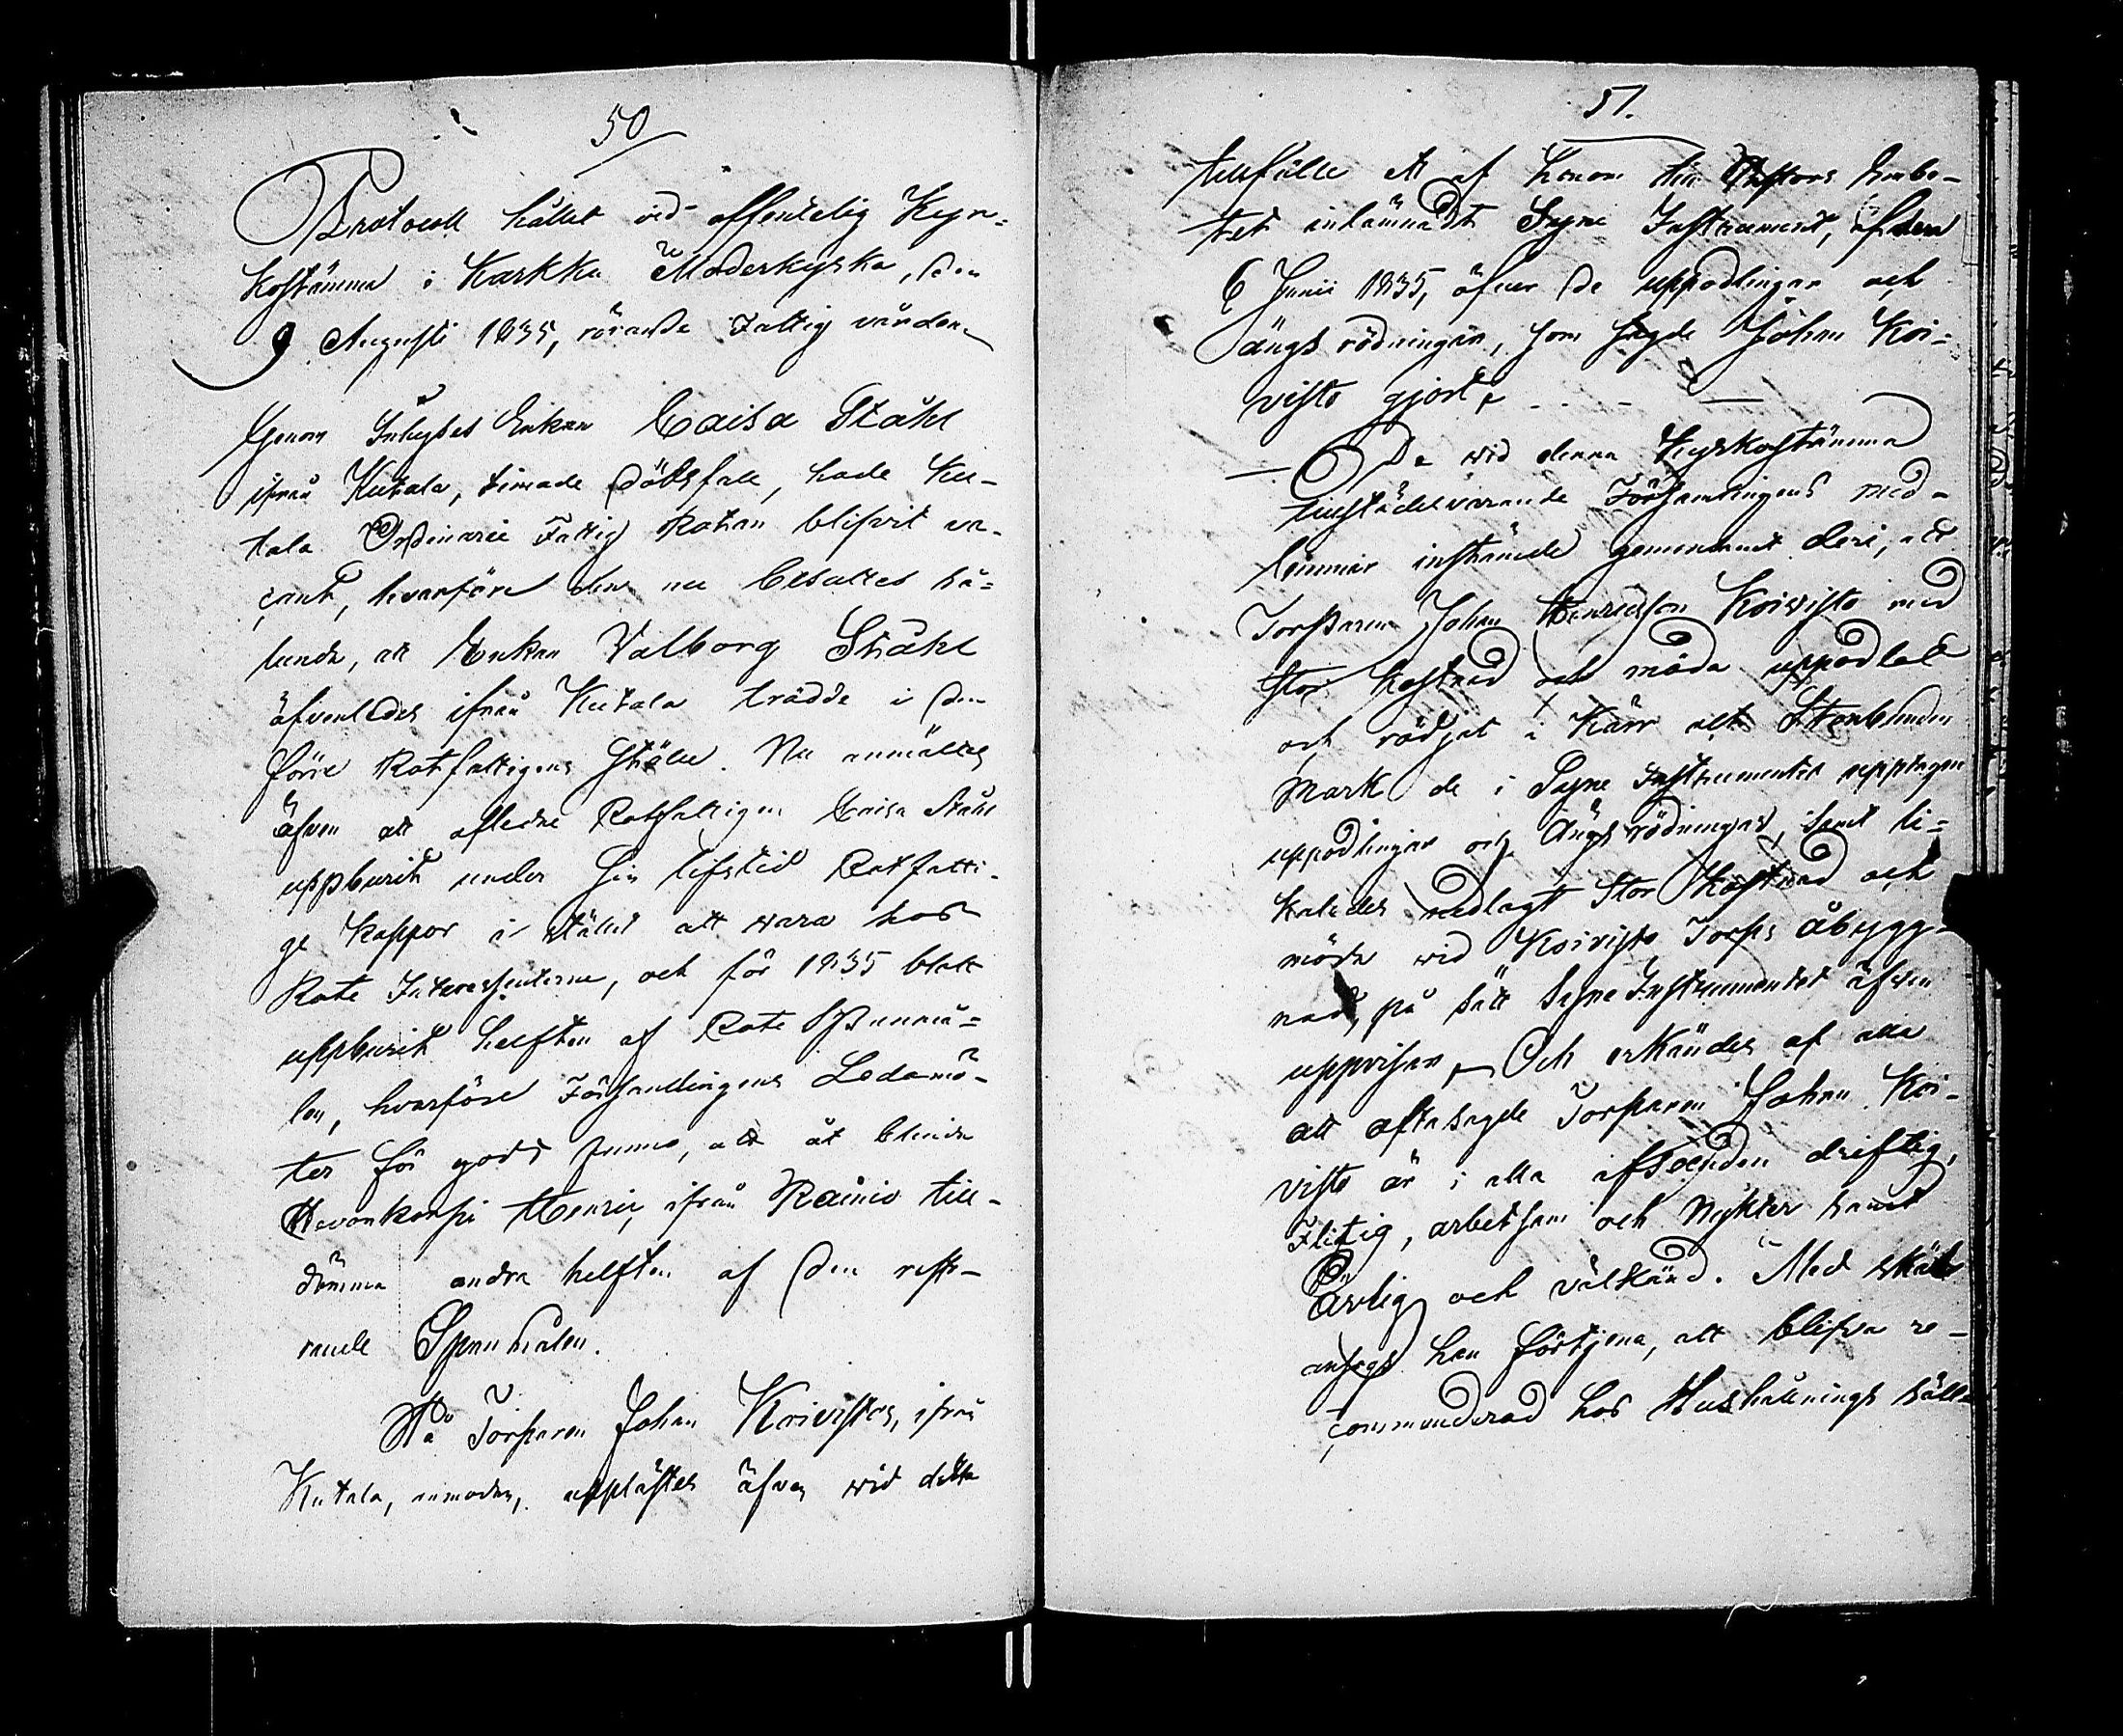 50
Protocoll hållet vid offentelig Kyr=
kostämma i Karkku Moderkyrka, den
9 Augusti 1835, rörande Fattig vården
Genom Inhyses Enkan Caisa Ståhl
ifrån Kutala, timade dödsfall, hade Ku-
tala Ordinarie Fattig Rotan blifvit va-
cant, hvarföre den nu besattes så=
lunda, att Enkan Valborg Ståhl
äfvenledes ifrån Kutala trädde i den
förre Rotfattigens ställe. Nu anmältes
äfven att afledne Rotfattigen Caisa Ståhl
uppburit under sin lifstid Rotfatti-
ge kappor i stället att wara hos
Rote Interessenterne, och för 1835 blott
uppburit helften af Rote Spannmå=
len, hvarföre Församlingens Ledamö-
ter för godt funno, att åt blinda
Hevonkorpi Henric ifrån Rainio till-
dömma andra helften af den reste-
rande Spannmålen.
På Torparen Johan Koivistos, ifrån
Kutala, anmodan, upplästes äfven wid detta
51.
tillfälle ett af honom till Pastors Embe-
tet inlämnadt Syne Instrument, af den
6 Junii 1835, öfver de uppodlingar och
ängs rödningar, som sagde Johan Koi=
visto gjort.
De wid denna Kyrkostämma
tillstädesvarande Församlingens med-
lemmar instämde gemensamt deri, att
Torparen Johan Henricsson Koivisto med
stor kostnad och möda uppodlat
och rödjat i Kärr och Stenbunden
mark de i Syne Instrumentet upptagne
uppodlingar och Ängsrödningar, samt li=
kaledes nedlagt stor kostnad och
möda wid Koivisto Torps åbygg-
nad, på sätt Syne Instrumentet äfven
uppvisar. Och erkändes af alla
att oftasagde Torparen Johan Koi-
visto är i alla afseenden driftig,
Flitig, arbetsam och Nykter samt
Ärlig och välkänd. Med skäl
ansågs han förtjena, att blifva re-
commenderad hos Hushållnings säll-